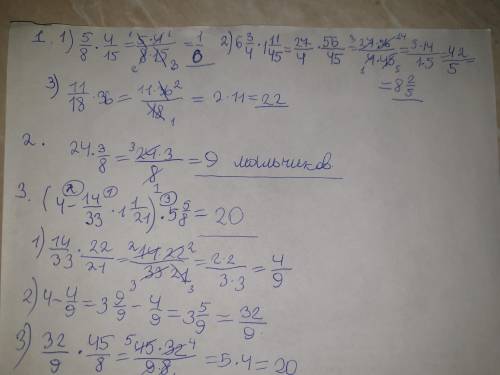 1. 1) 5/8 · 4/15 = 5·4/8·15 = 1/6 2) 6 3/4 · 1 11/45 = 27/4 · 56/45 = 27·56/4·45 = 3·14/1·5 = 42/5 =
= 8 2/5
3) 11/18 · 36 = 11·36/18 = 2·11 = 22
2.
24·3/8 = 24·3/8 = 9 мальчиков.
3. (4 - 14/33 · 1 1/21) · 5 5/8 = 20
1) 14/33 · 22/21 = 14·22/33·21 = 2·2/3·3 = 4/9
2) 4 - 4/9 = 3 9/9 - 4/9 = 3 5/9 = 32/9
3) 32/9 · 45/8 = 45·32/9·8 = 5·4 = 20